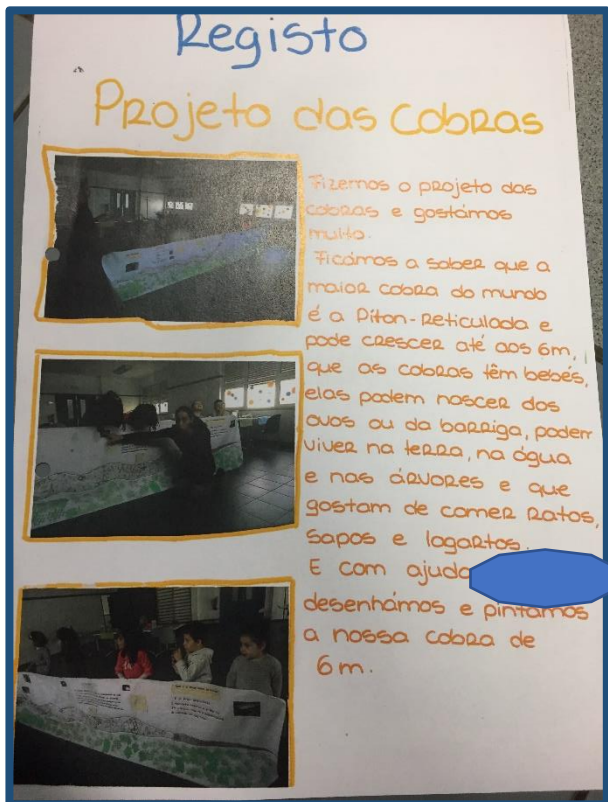 Registo
Projeto das Cobras
Fizemos o projeto das
cobras e gostámos
muito.
Ficámos a saber que a
maior cobra do mundo
é a Píton-Reticulada e
pode crescer até aos 6m,
que as cobras têm bebés,
elas podem nascer dos
ovos ou da barriga, podem
viver na terra, na água
e nas árvores e que
gostam de comer ratos,
sapos e lagartos.
E com ajuda
desenhámos e pintámos
a nossa cobra de
6m.